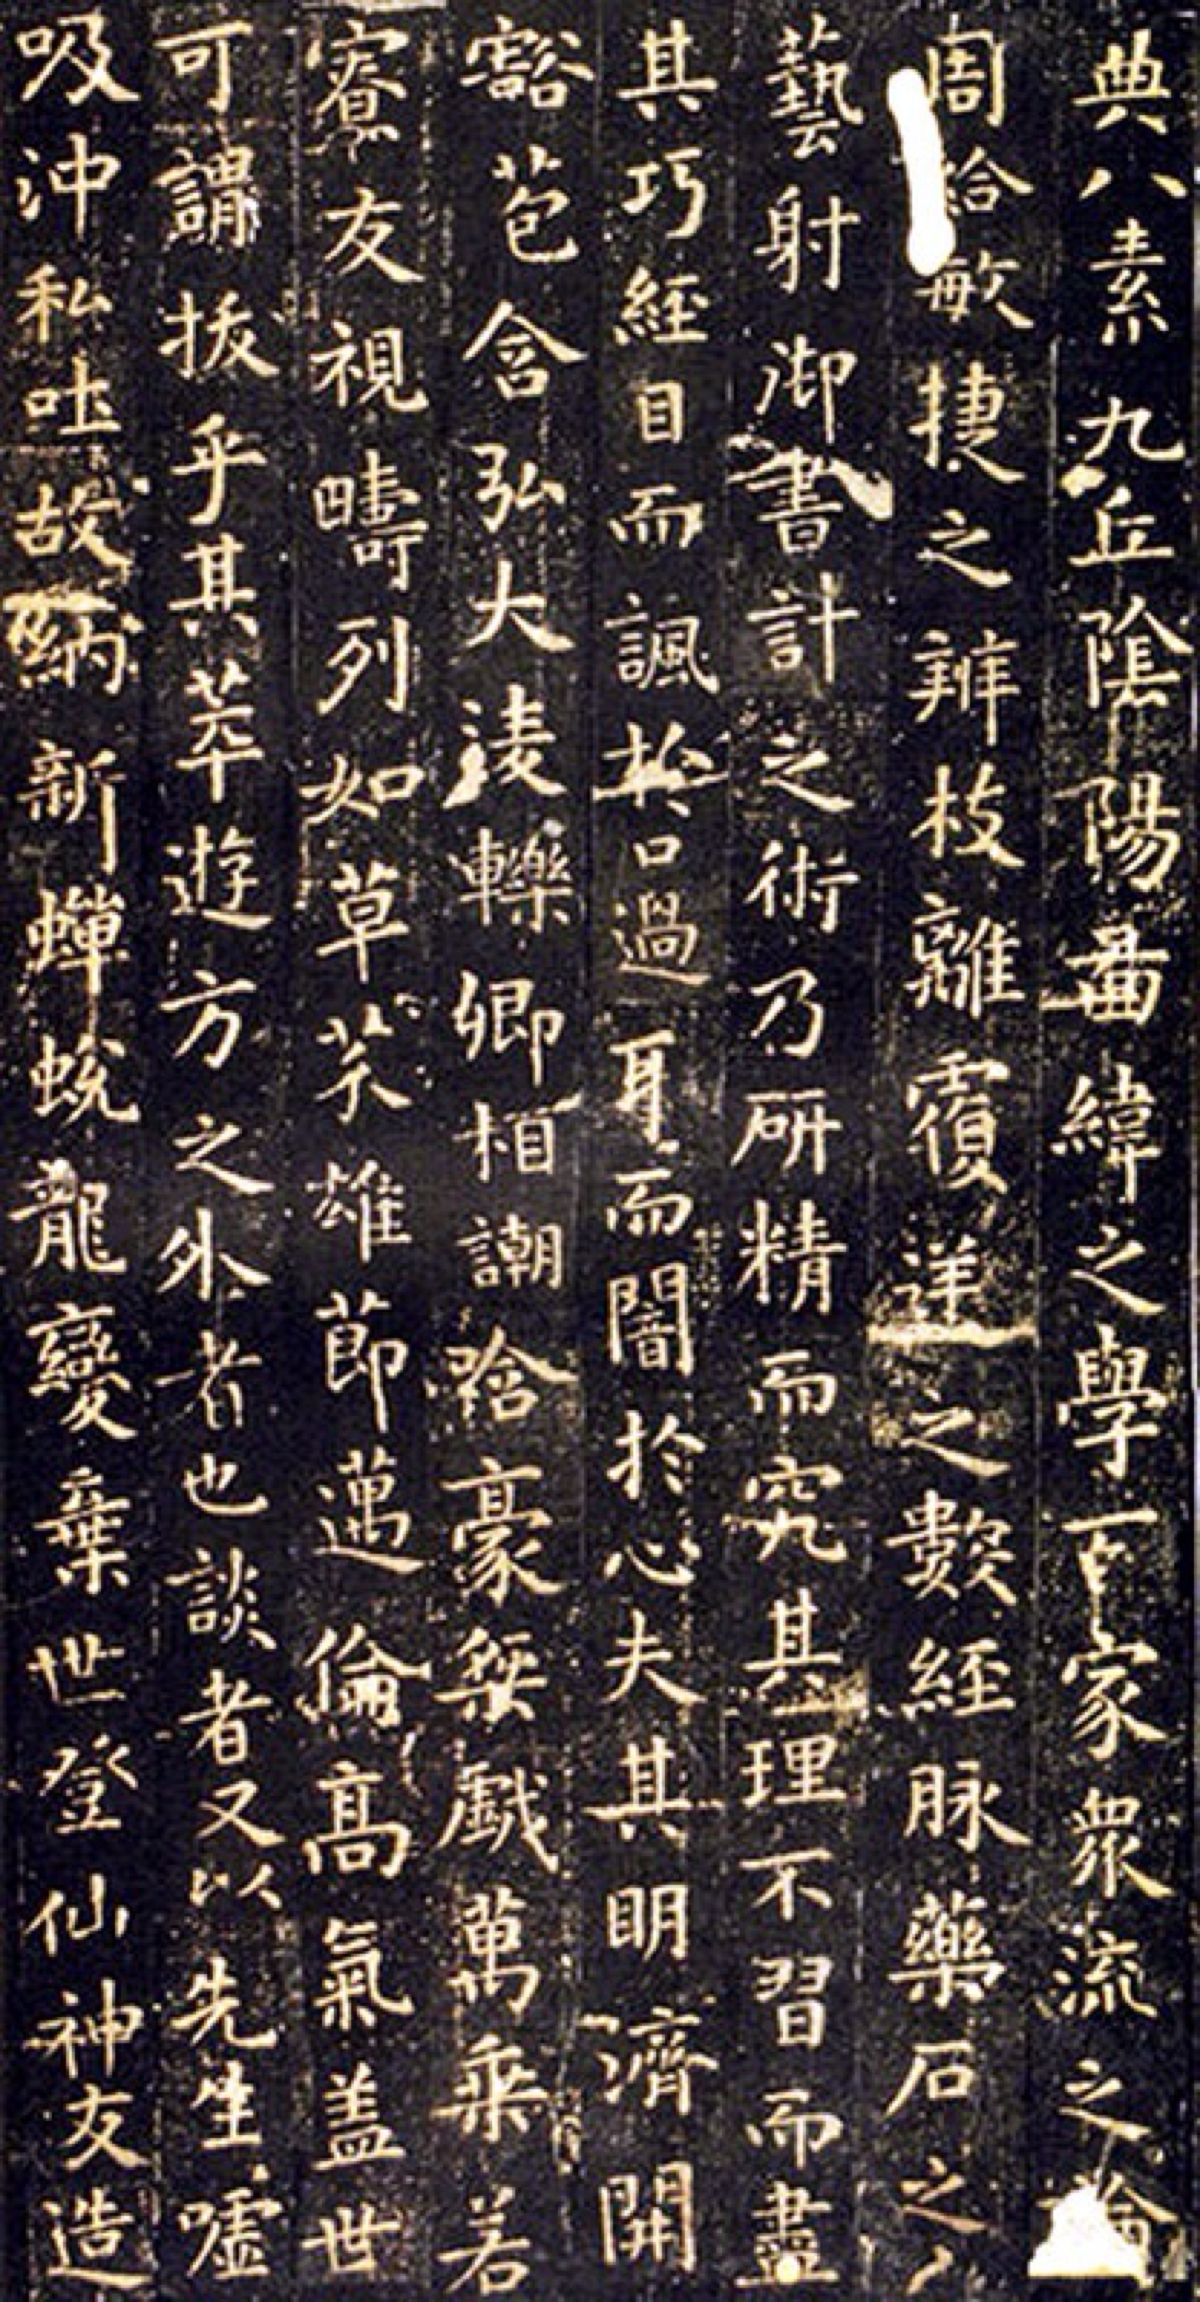 典八素九丘陰陽啚緯之學百家衆流之論
周給敏捷之辨枝離覆逆之數經脉藥石之
藝射御書計之術乃研精而究其理不習而盡
其巧經目而諷於口過耳而闇於心夫其明濟開
豁苞含弘大淩轢卿相謿哈豪桀戲萬乘若
寮友視疇列如草芥雄莭邁倫髙氣盖世
可謂拔乎其萃遊方之外者也談者又以先生噓
吸沖和吐故納新蟬蛻龍變棄世登仙神友造